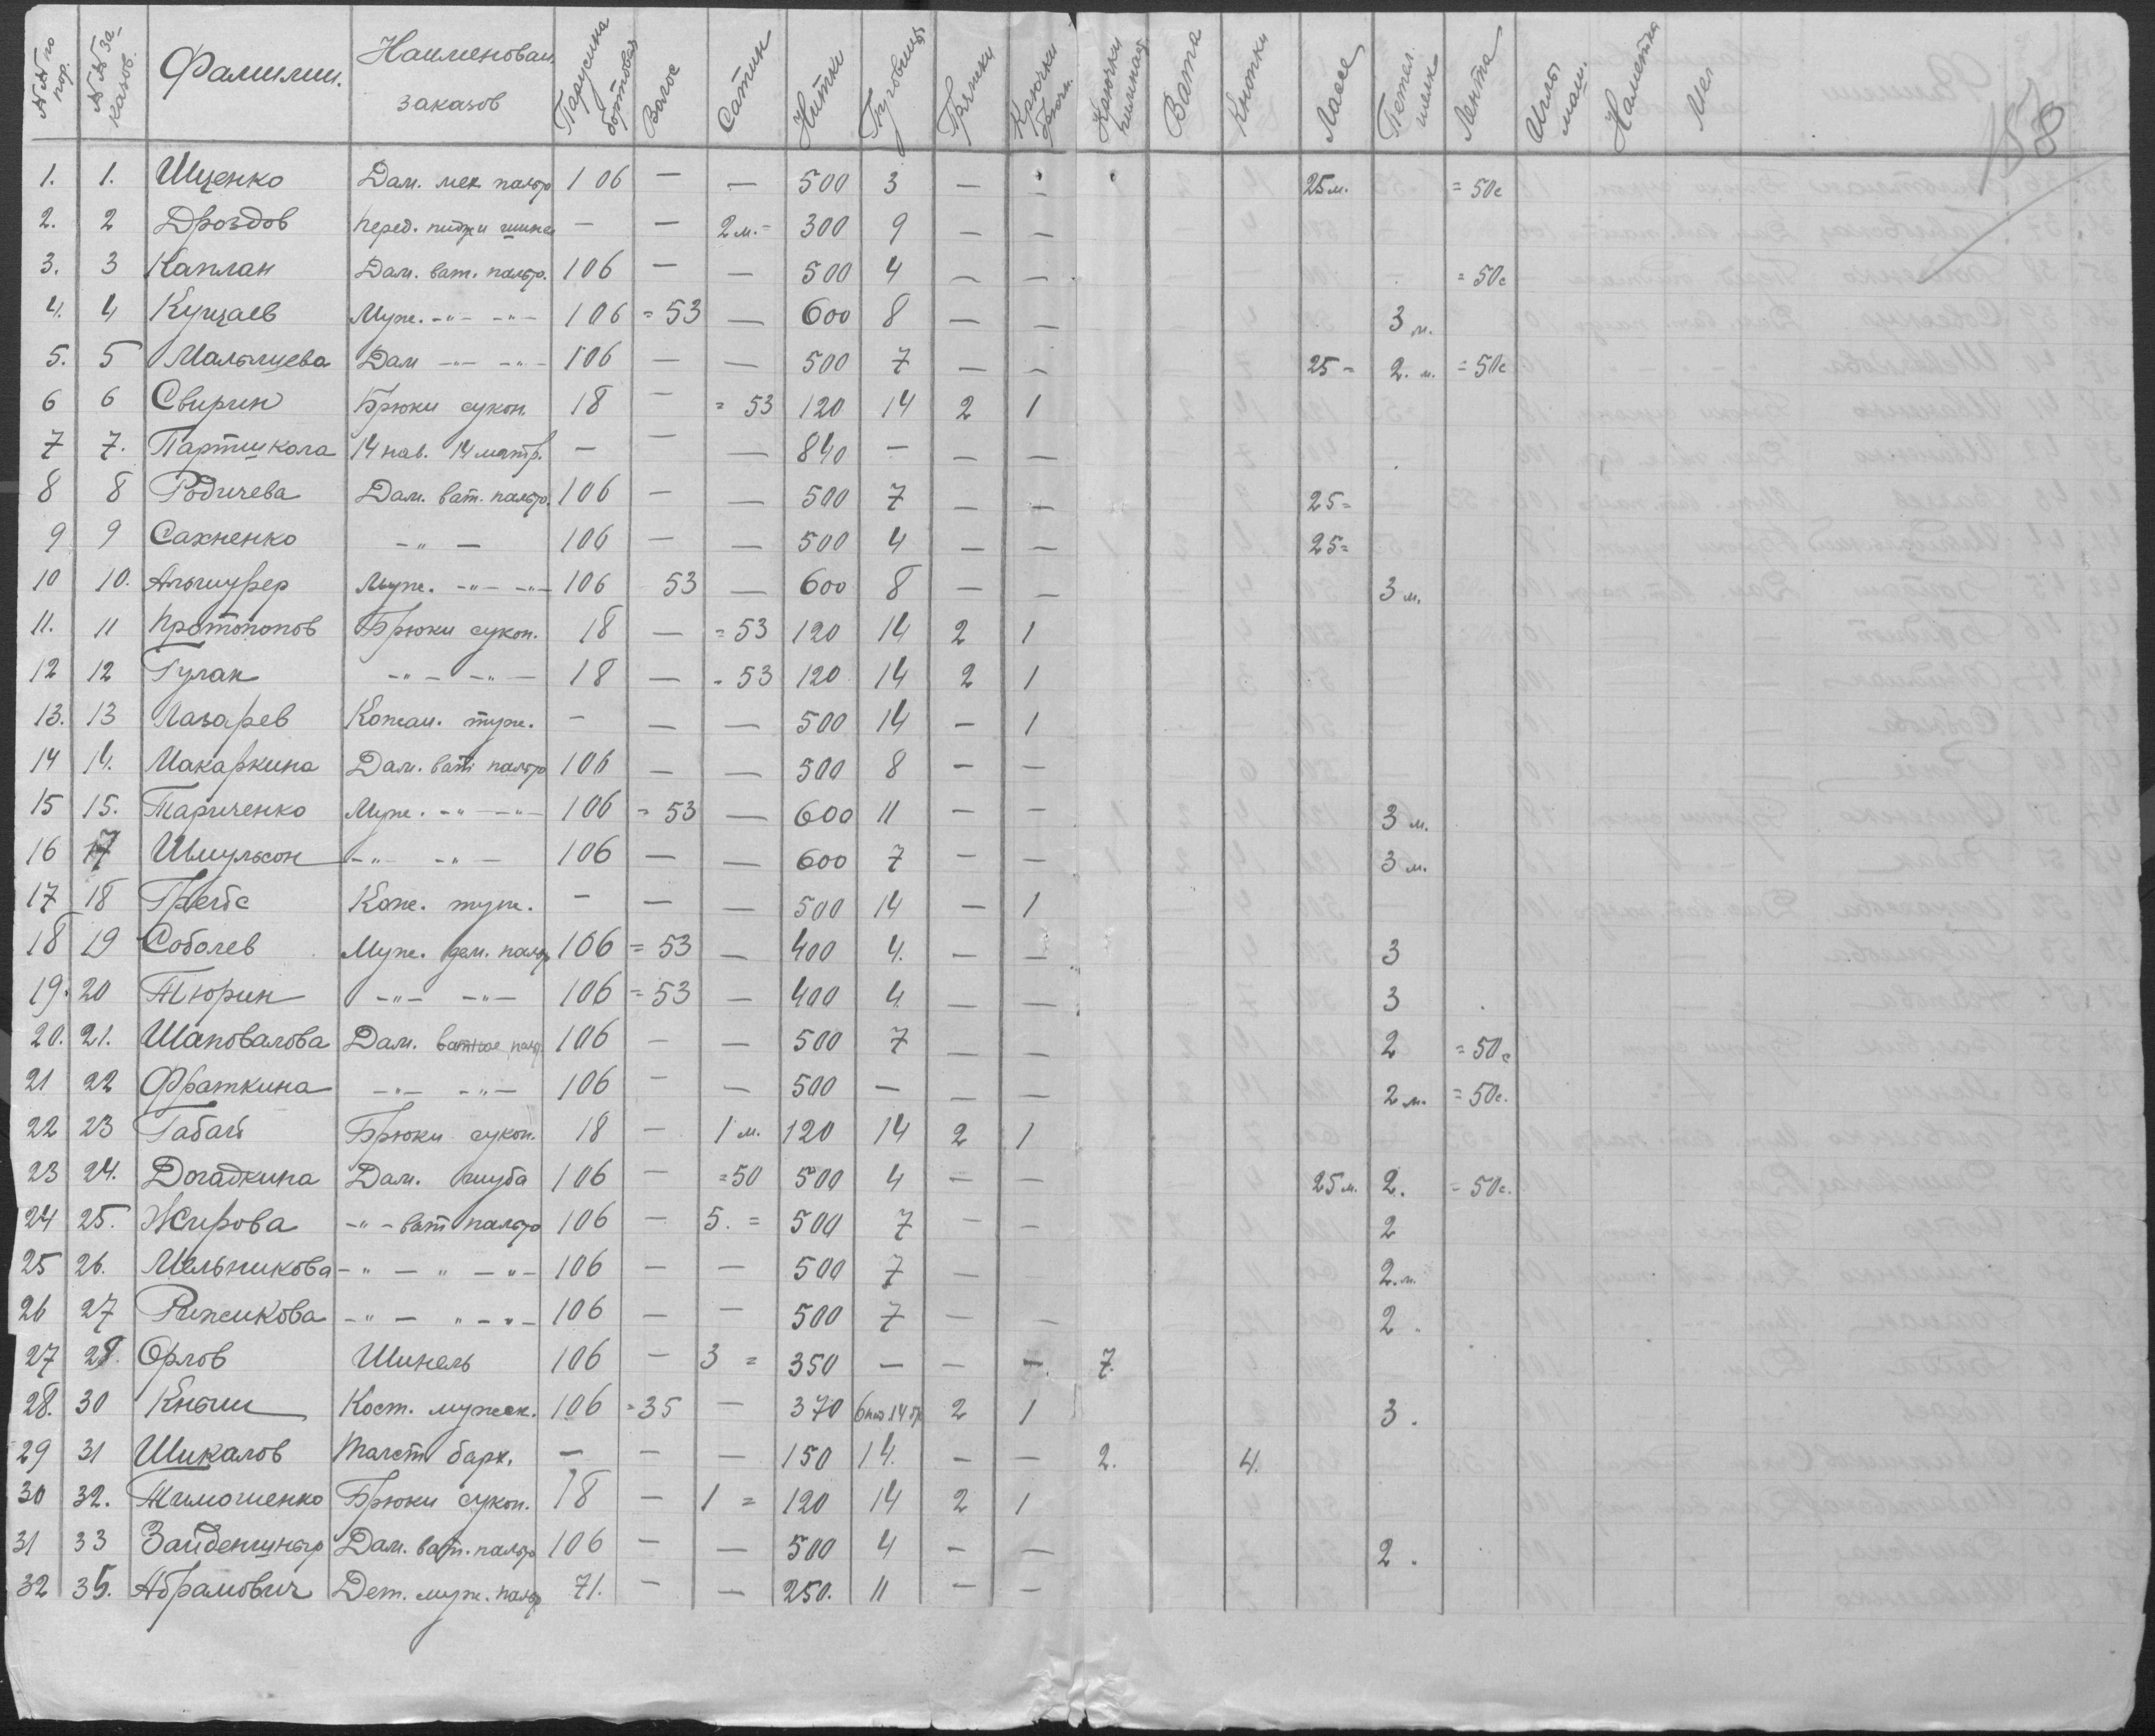 №№ по пор. №№ за-казов. Фамилии. Наименован. заказов Парусина бортовая Волос Сатин Нитки Пуговицы Пряжки Крючки брючн. Крючки Вата Кнопки Лассе Петел. шелк Лента Иглы маш. Наметка Мел
158
1. 1. Ищенко Дам. мех пальто 106 — — 500 3 — — 25 м. = 50с
2. 2 Дроздов перед. пидж и шинел — — 2 м. = 300 9 — —
3. 3 Каплан Дам. ват. пальто. 106 — — 500 4 — — = 50с
4. 4 Купцаев Муж. -"- -"- 106 = 53 — 600 8 — — 3 м.
5. 5 Мальпцева Дам -"- -"- 106 — — 500 7 — — 25 = 2. м. = 50с
6 6 Свирин Брюки сукон. 18 — = 53 120 14 2 1
7 7. Партшкола 14 нав. 14 матр. — — — 840 — — —
8 8 Родичева Дам. ват. пальто. 106 — — 500 7 — — 25 =
9 9 Сахненко -"- 106 — — 500 4 — — 25 =
10 10. Альшуфер Муж. -"- -"- 106 53 — 600 8 — — 3 м.
11. 11 Протопопов Брюки сукон. 18 — = 53 120 14 2 1
12 12 Гулак -"- -"- 18 — = 53 120 14 2 1
13. 13 Лазарев Кожан. туж. — — — 500 14 — 1
14 14. Макаркина Дам. ват. пальто 106 — — 500 8 — —
15 15. Тариченко Муж. -"- -"- 106 = 53 — 600 11 — — 3 м.
16 17 Шмульсон -"- -"- 106 — — 600 7 — — 3 м.
17 18 Кож. туж. — — — 500 14 — 1
18 19 Соболев Муж. дем. пальто 106 = 53 — 400 4. — — 3
19. 20 Тюрин -"- -"- 106 = 53 — 400 4. — — 3
20. 21. Шаповалова Дам. ватное пальт. 106 — — 500 7 — — 2 = 50с
21 22 Фраткина -"- -"- 106 — — 500 — — — 2 м. = 50с.
22 23 Габай Брюки сукон. 18 — 1 м. 120 14 2 1
23 24. Догадкина Дам. шуба 106 — = 50 500 4 — — 25 м. 2. = 50с.
24 25. Жирова -"- ват пальто 106 — 5. = 500 7 — — 2
25 26. Мельникова -"- " -"- 106 — — 500 7 — — 2. м.
26 27 Рыжикова -"- " -"- 106 — — 500 7 — — 2.
27 28. Орлов Шинель 106 — 3 = 350 — — — 7.
28. 30 Кныш Кост. мужск. 106 = 35 — 370 6 14 2 1 3.
29 31 Шикалов Толст барх. — — — 150 14. — — 2. 4.
30 32. Тимошенко Брюки сукон. 18 — 1 = 120 14 2 1
31 33 Зайденшнир Дам. ват. пальто 106 — — 500 4 — — 2.
32 35. Абрамович Дет. муж. пальто 71. — — 250. 11 — —